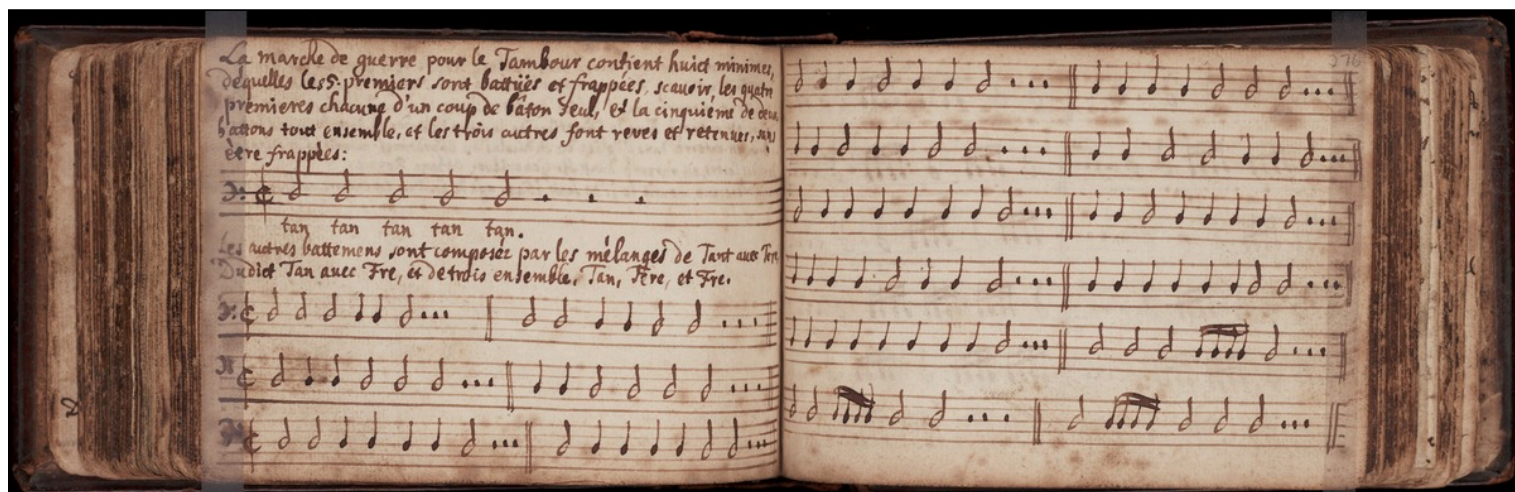 La marche de guerre pour le Tambour contient huict minimes,
dequelles les 5. premiers sont battües et frappées, scauoir, les quatre
premieres chacune d'un coup de bâton seul, & la cinquiéme de deux
battons tout ensemble, et les trois autres sont reves et retenues, sans
être frappées:
tan tan tan tan tan.
Les autres battemens sont composéz par les mélanges de Tant auec Tere
Dudict Tan auec Fre, et de trois ensemble, Tan, Tere, et Fre.
276